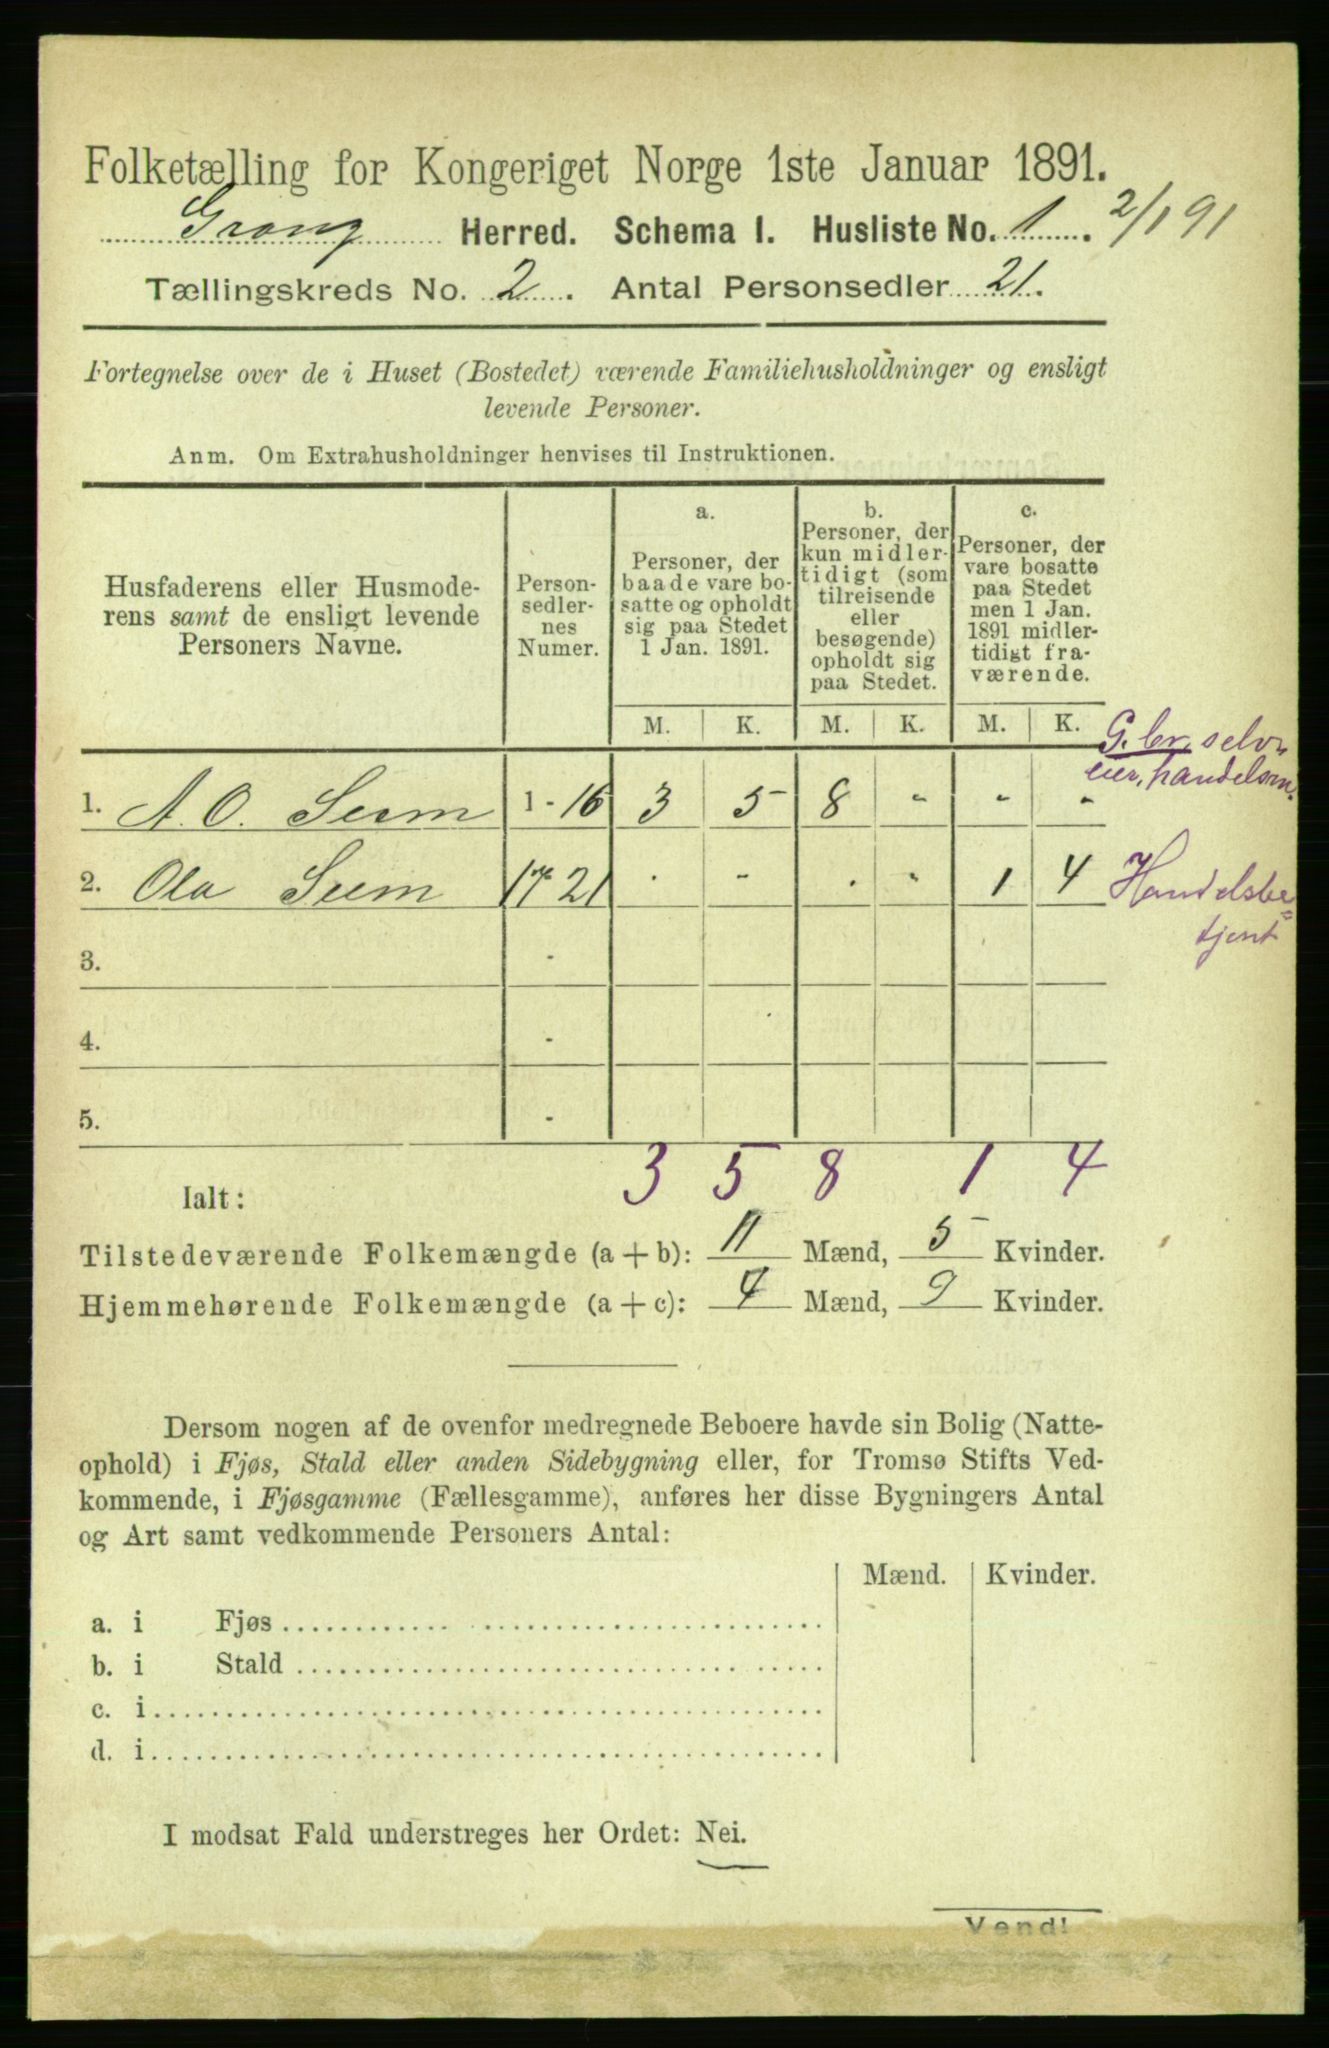 Folketælling for Kongeriget Norge 1ste Januar 1891.
Grong Herred. Schema I. Husliste No. 1. 2/1 91
Tællingskreds No. 2. Antal Personsedler 21.
Fortegnelse over de i Huset (Bostedet) værende Familiehusholdninger og ensligt
levende Personer.
Anm. Om Extrahusholdninger henvises til Instruktionen.
Husfaderens eller Husmode-
rens samt de ensligt levende
Personers Navne.
Person-
sedler-
nes
Numer.
a.
Personer, der
baade vare bo-
satte og opholdt
sig paa Stedet
1 Jan. 1891.
b.
Personer, der
kun midler-
tidigt (som
tilreisende
eller
besøgende)
opholdt sig
paa Stedet.
c.
Personer, der
vare bosatte
paa Stedet
men 1 Jan.
1891 midler-
tidigt fra-
værende.
M. K. M. K. M. K.
G.br. selv-
eier, handelsm.
1. A. O. Seem 1 - 16 3 5 8 - - -
2. Ola Seem 17 21 . - . - 1 4 Handelsbe=
tjent
3. -
4. -
5. -
3 5 8 1 4
Ialt:
Tilstedeværende Folkemængde (a + b): 11 Mænd, 5 Kvinder.
Hjemmehørende Folkemængde (a + c): 4 Mænd, 9 Kvinder.
Dersom nogen af de ovenfor medregnede Beboere havde sin Bolig (Natte-
ophold) i Fjøs, Stald eller anden Sidebygning eller, for Tromsø Stifts Ved-
kommende, i Fjøsgamme (Fællesgamme), anføres her disse Bygningers Antal
og Art samt vedkommende Personers Antal:
Mænd. Kvinder.
a. i Fjøs
b. i Stald
c. i
d. i
I modsat Fald understreges her Ordet: Nei.
Vend!